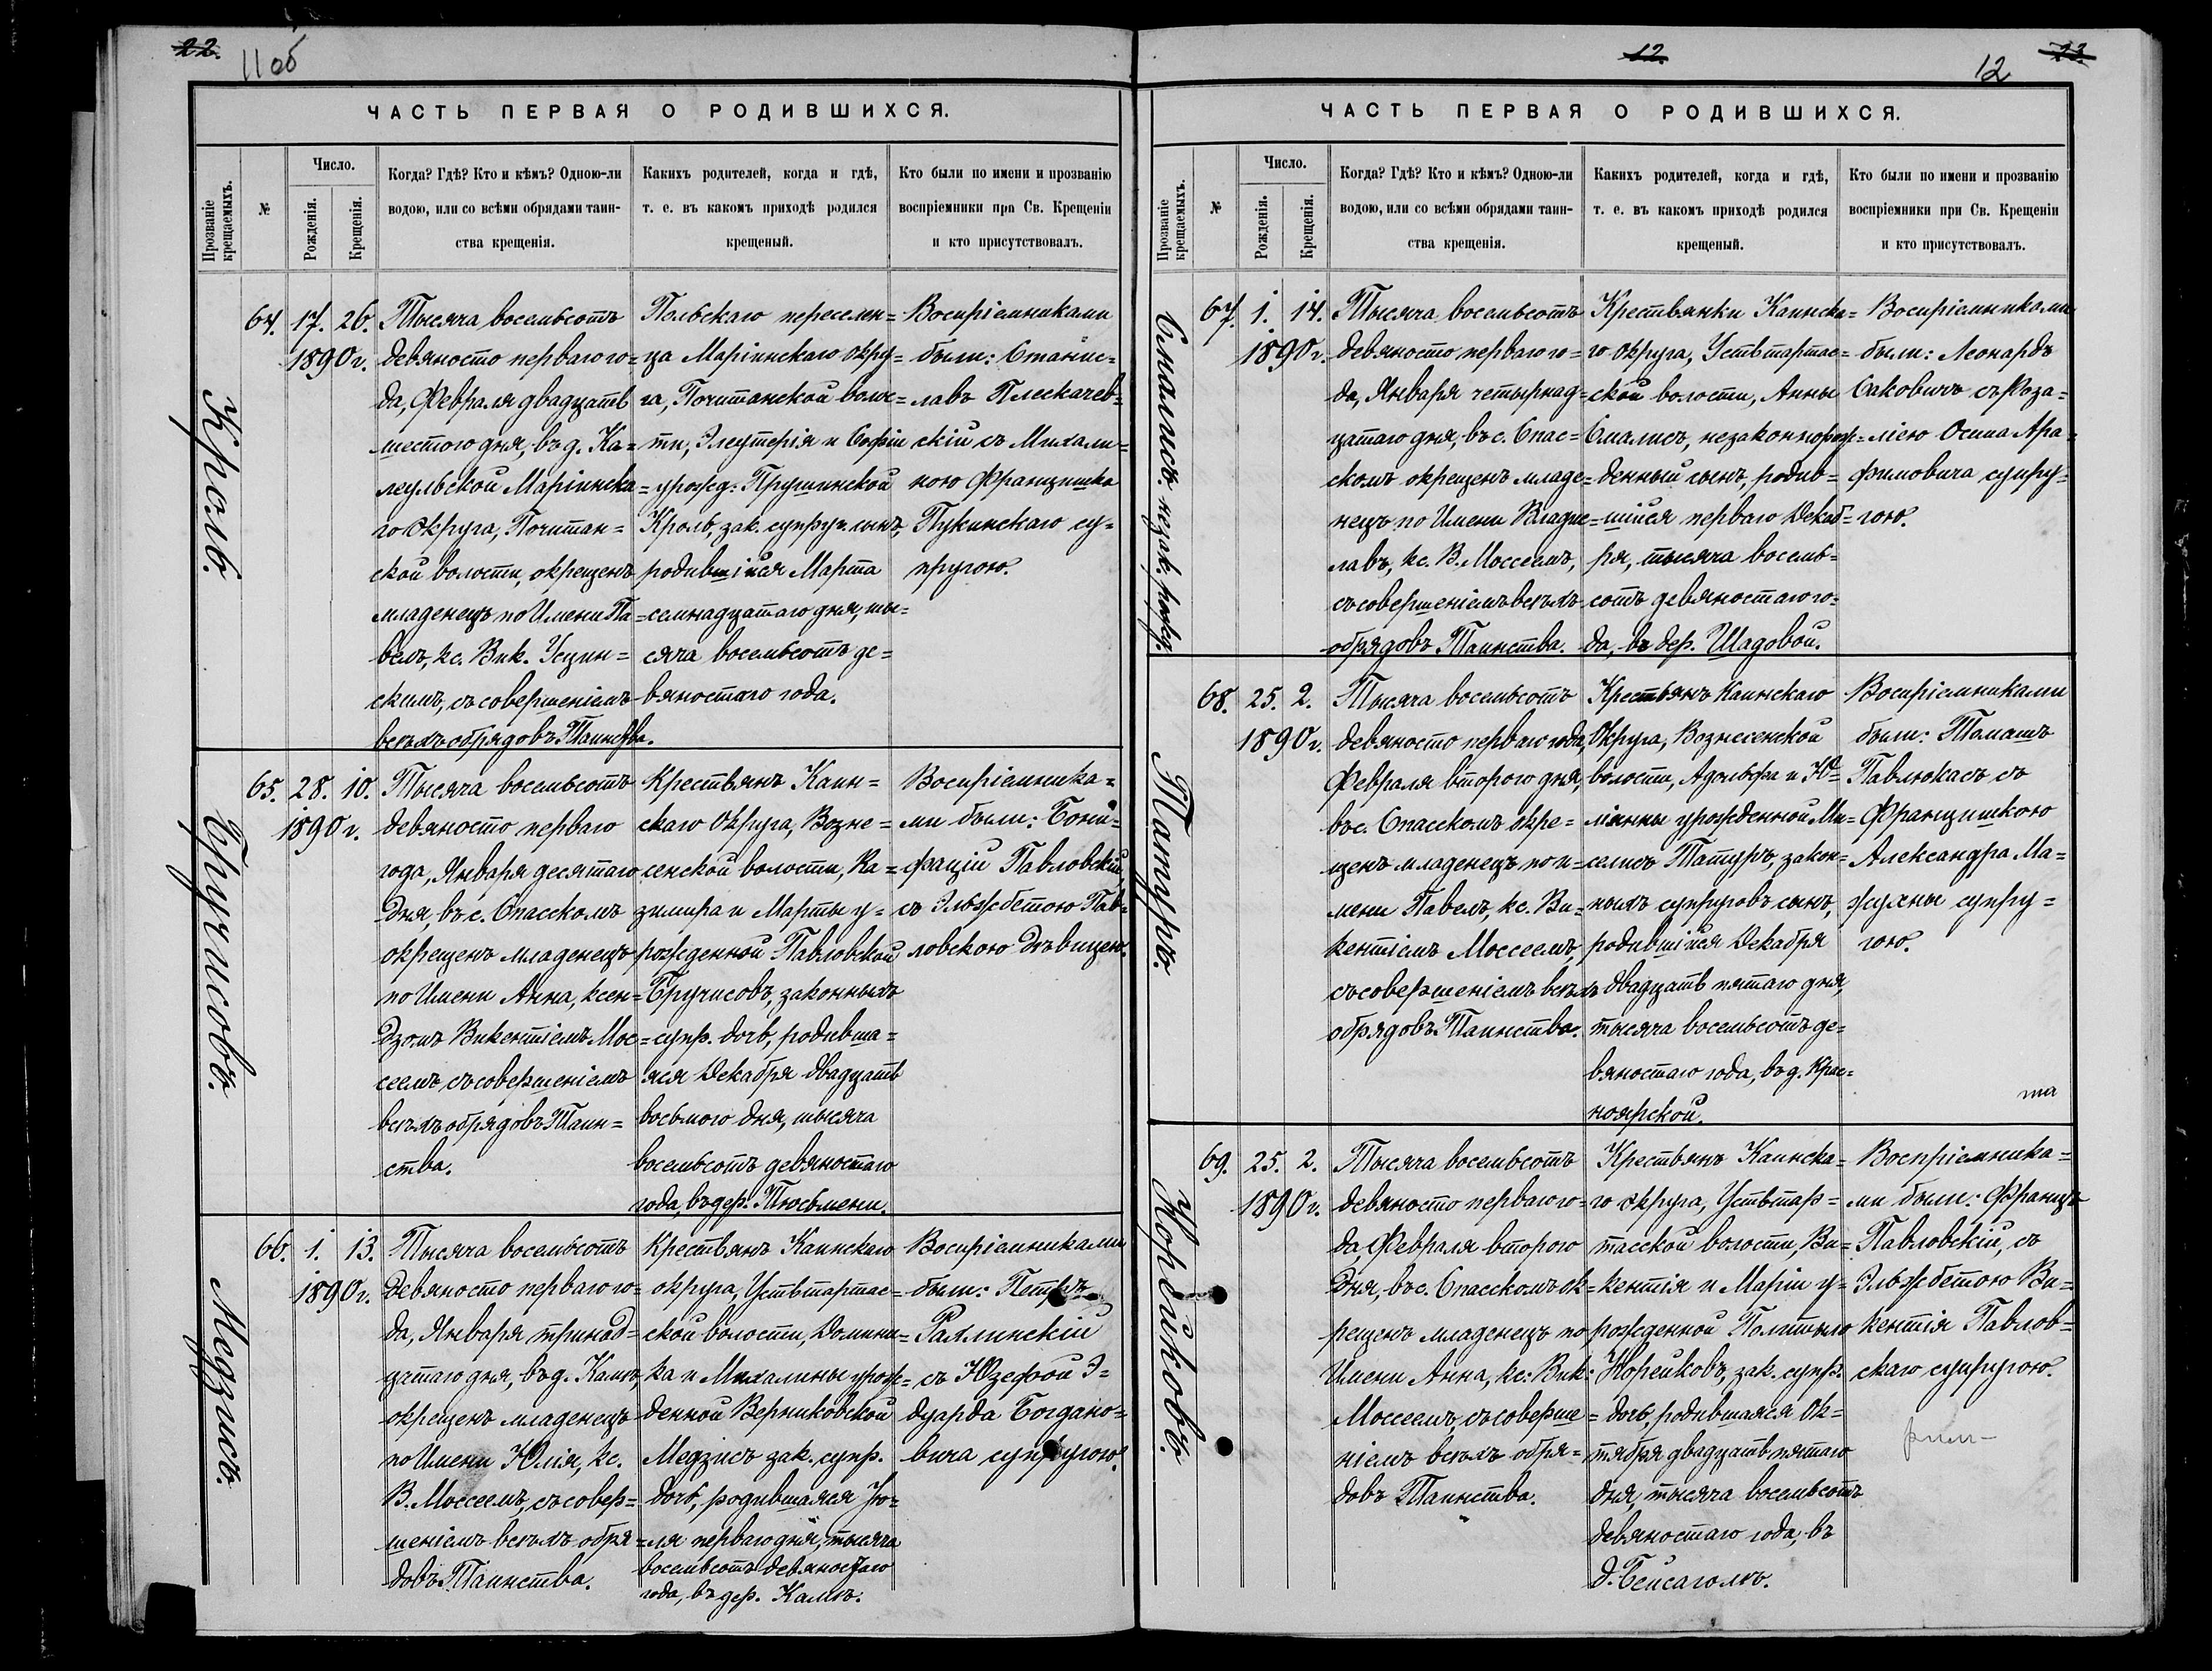 22.
11 об
ЧАСТЬ ПЕРВАЯ О РОДИВШИХСЯ.
Прозваніе крещаемыхъ.
№
Число.
Рожденія.
Крещенія.
Когда? Гдѣ? Кто и кѣмъ? Одною-ли
водою, или со всѣми обрядами таин-
ства крещенія.
Какихъ родителей, когда и гдѣ,
т. е. въ какомъ приходѣ родился
крещеный.
Кто были по имени и прозванію
воспріемники при Св. Крещеніи
и кто присутствовалъ.
Кроль.
64. 17. 26.
1890 г.
Тысяча восемьсотъ
девяносто перваго го=
да, Февраля двадцать
шестого дня, въ д. Ка=
леульской Маріинска=
го Округа, Почитан=
ской волости, окрещенъ
младенецъ по Имени Па=
велъ, кс. Вик. Усцин=
скимъ, съ совершеніемъ
всѣхъ обрядовъ Таинства.
Польскаго переселен=
ца Маріинскаго окру=
га, Почитанской волос=
ти, Элеутерія и Софіи
урожд. Прушинской
Кроль, зак. супруг. сынъ,
родившійся Марта
семнадцатаго дня, ты=
сяча восемьсотъ де=
вяностаго года.
Воспріемниками
были: Станис=
лавъ Плескачев=
скій съ Михали=
ною Францишка
Пукинскаго су=
пругою.
Бручисовъ.
65. 28. 10.
1890 г.
Тысяча восемьсотъ
девяносто перваго
года, Января десятаго
Дня, въ с. Спасскомъ
окрещенъ младенецъ
по Имени Анна, ксен=
дзомъ Викентіемъ Мос=
сеемъ съ совершеніемъ
всѣхъ обрядовъ Таин=
ства.
Крестьянъ Каин=
скаго Округа, Возне=
сенской волости, Ка=
зимира и Марты у=
рожденной Павловской
Бручисовъ, законныхъ
супр. дочь, родивша=
яся Декабря двадцать
восьмого дня, тысяча
восемьсотъ девяностаго
года, въ дер. Тюсьмени.
Воспріемника=
ми были: Бони=
фацій Павловскій,
съ Эльжбетою Пав=
ловскою дѣвицею.
Медзисъ.
66. 1. 13.
1890 г.
Тысяча восемьсотъ
девяносто перваго го=
да, Января тринад=
цатаго дня, въ д. Камѣ,
окрещенъ младенецъ
по Имени Юлія, кс.
В. Моссеемъ, съ совер=
шеніемъ всѣхъ обря=
довъ Таинства.
Крестьянъ Каинскаго
округа, Устьтартас=
ской волости, Домини=
ка и Михалины урож=
денной Верниковской
Медзисъ зак. супр.
дочь, родившаяся Ію=
ля перваго дня, тысяча
восемьсотъ девяностаго
года, въ дер. Камѣ.
Воспріемниками
были: Петръ
Рахлинскій
съ Юзефой Э=
дуарда Богдано=
вича супругою.
12.
12
23.
ЧАСТЬ ПЕРВАЯ О РОДИВШИХСЯ.
Прозваніе крещаемыхъ.
№
Число.
Рожденія.
Крещенія.
Когда? Гдѣ? Кто и кѣмъ? Одною-ли
водою, или со всѣми обрядами таин-
ства крещенія.
Какихъ родителей, когда и гдѣ,
т. е. въ какомъ приходѣ родился
крещеный.
Кто были по имени и прозванію
воспріемники при Св. Крещеніи
и кто присутствовалъ.
Смалисъ. незак. рожд.
67. 1. 14.
1890 г.
Тысяча восемьсотъ
девяносто перваго го=
да, Января четырнад=
цатаго дня, въ с. Спас=
скомъ окрещенъ младе=
нецъ по Имени Владис=
лавъ, кс. В. Моссеемъ,
съ совершеніемъ всѣхъ
обрядовъ Таинства.
Крестьянки Каинска=
го округа, Устьтартас=
ской волости, Анны
Смалисъ, незаконнорож=
денный сынъ, родив=
шійся перваго Декаб=
ря, тысяча восемь=
сотъ девяностаго го=
да, въ дер. Шадовой.
Воспріемниками
были: Леонардъ
Саковичъ съ Роза=
ліею Осипа Ара=
фимовича супру=
гою.
Татуръ.
68. 25. 2.
1890 г.
Тысяча восемьсотъ
девяносто перваго года,
Февраля второго дня,
въ с. Спасскомъ окре=
щенъ младенецъ по и=
мени Павелъ, кс. Ви=
кентіемъ Моссеемъ,
съ совершеніемъ всѣхъ
обрядовъ Таинства.
Крестьянъ Каинскаго
Округа, Вознесенской
волости, Адольфа и Ю=
міанны урожденной Ми=
селисъ Татуръ, закон=
ныхъ супруговъ сынъ,
родившійся Декабря
двадцать пятаго дня,
тысяча восемьсотъ де=
вяностаго года, въ д. Крас=
ноярской.
Воспріемниками
были: Томашъ
Павлюкасъ съ
Францишкою
Александра Ма=
жуяны супру=
гою.
та
Норейковъ.
69. 25. 2.
1890 г.
Тысяча восемьсотъ
девяносто перваго го=
да, Февраля второго
Дня, въ с. Спасскомъ ок=
рещенъ младенецъ по
Имени Анна, кс. Вик:
Моссеемъ, съ соверше=
ніемъ всѣхъ обря=
довъ Таинства.
Крестьянъ Каинска=
го округа, Устьтар=
тасской волости, Ви=
кентія и Маріи у=
рожденной Политыло
Норейковъ, зак. супр.
дочь, родившаяся Ок=
тября двадцать пятаго
дня, тысяча восемьсотъ
девяностаго года, въ
д. Бейсаголъ.
Воспріемника=
ми были: Францъ
Павловскій, съ
Эльжбетою Ви=
кентія Павлов=
скаго супругою.